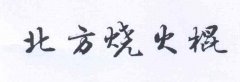 北方烧火棍